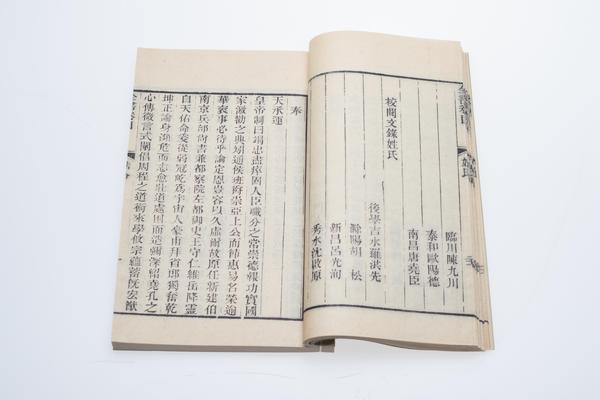 臨川陳九川
泰和歐陽德
南昌唐堯臣
校閱文錄姓氏
後學吉水羅洪先
滁陽胡松
新昌呂光洵
秀水沈啟原
奉
天承運
皇帝制曰竭忠盡瘁固人臣職分之常崇德報功實國
家激勸之典矧通侯班爵崇亞上公而節惠易名榮逾
華袞事必待乎論定恩豈容以久虛爾故原任新建伯
南京兵部尚書兼都察院左都御史王守仁維岳降靈
自天佑命爰從弱冠屹爲宇宙人豪甫拜省郎獨奮乾
坤正論身瀕危而志愈壯道處困而造彌深紹堯孔之
心傳微言式闡倡周程之道術來學攸宗蘊蓄既宏猷